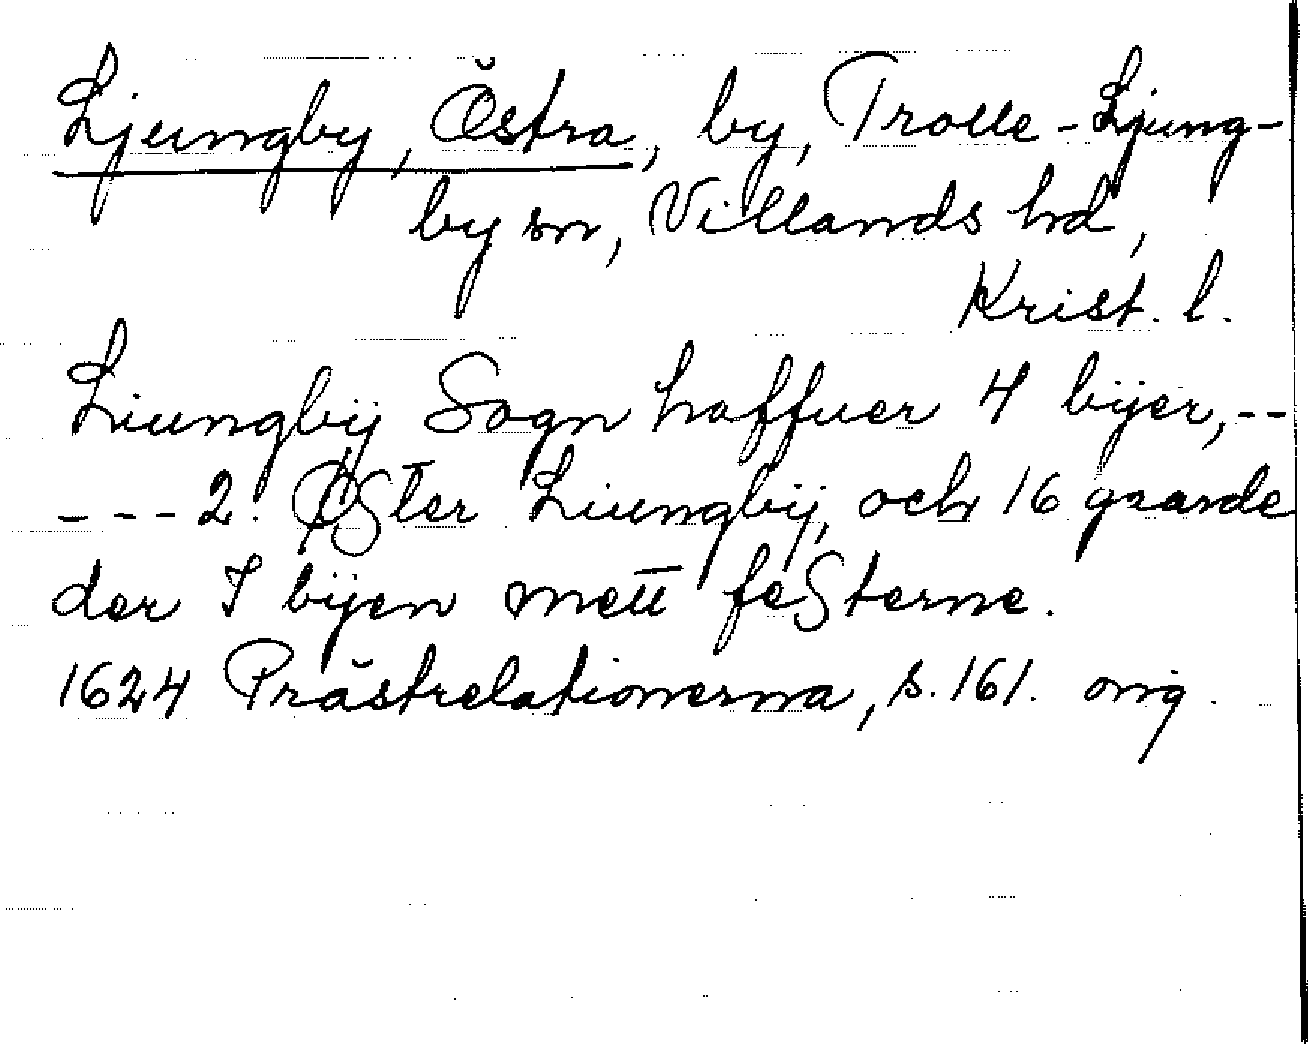 Ljungby, Östra, by, Trolle-Ljung-
by sn, Villands hd,
Krist. l.
Liungbij Sogn haffuer 4 bijer,--
---2. Øster Liungbij, och 16 gaarde
der I bijen mett festerne.
1624 Prästrelationerna, s. 161. orig.